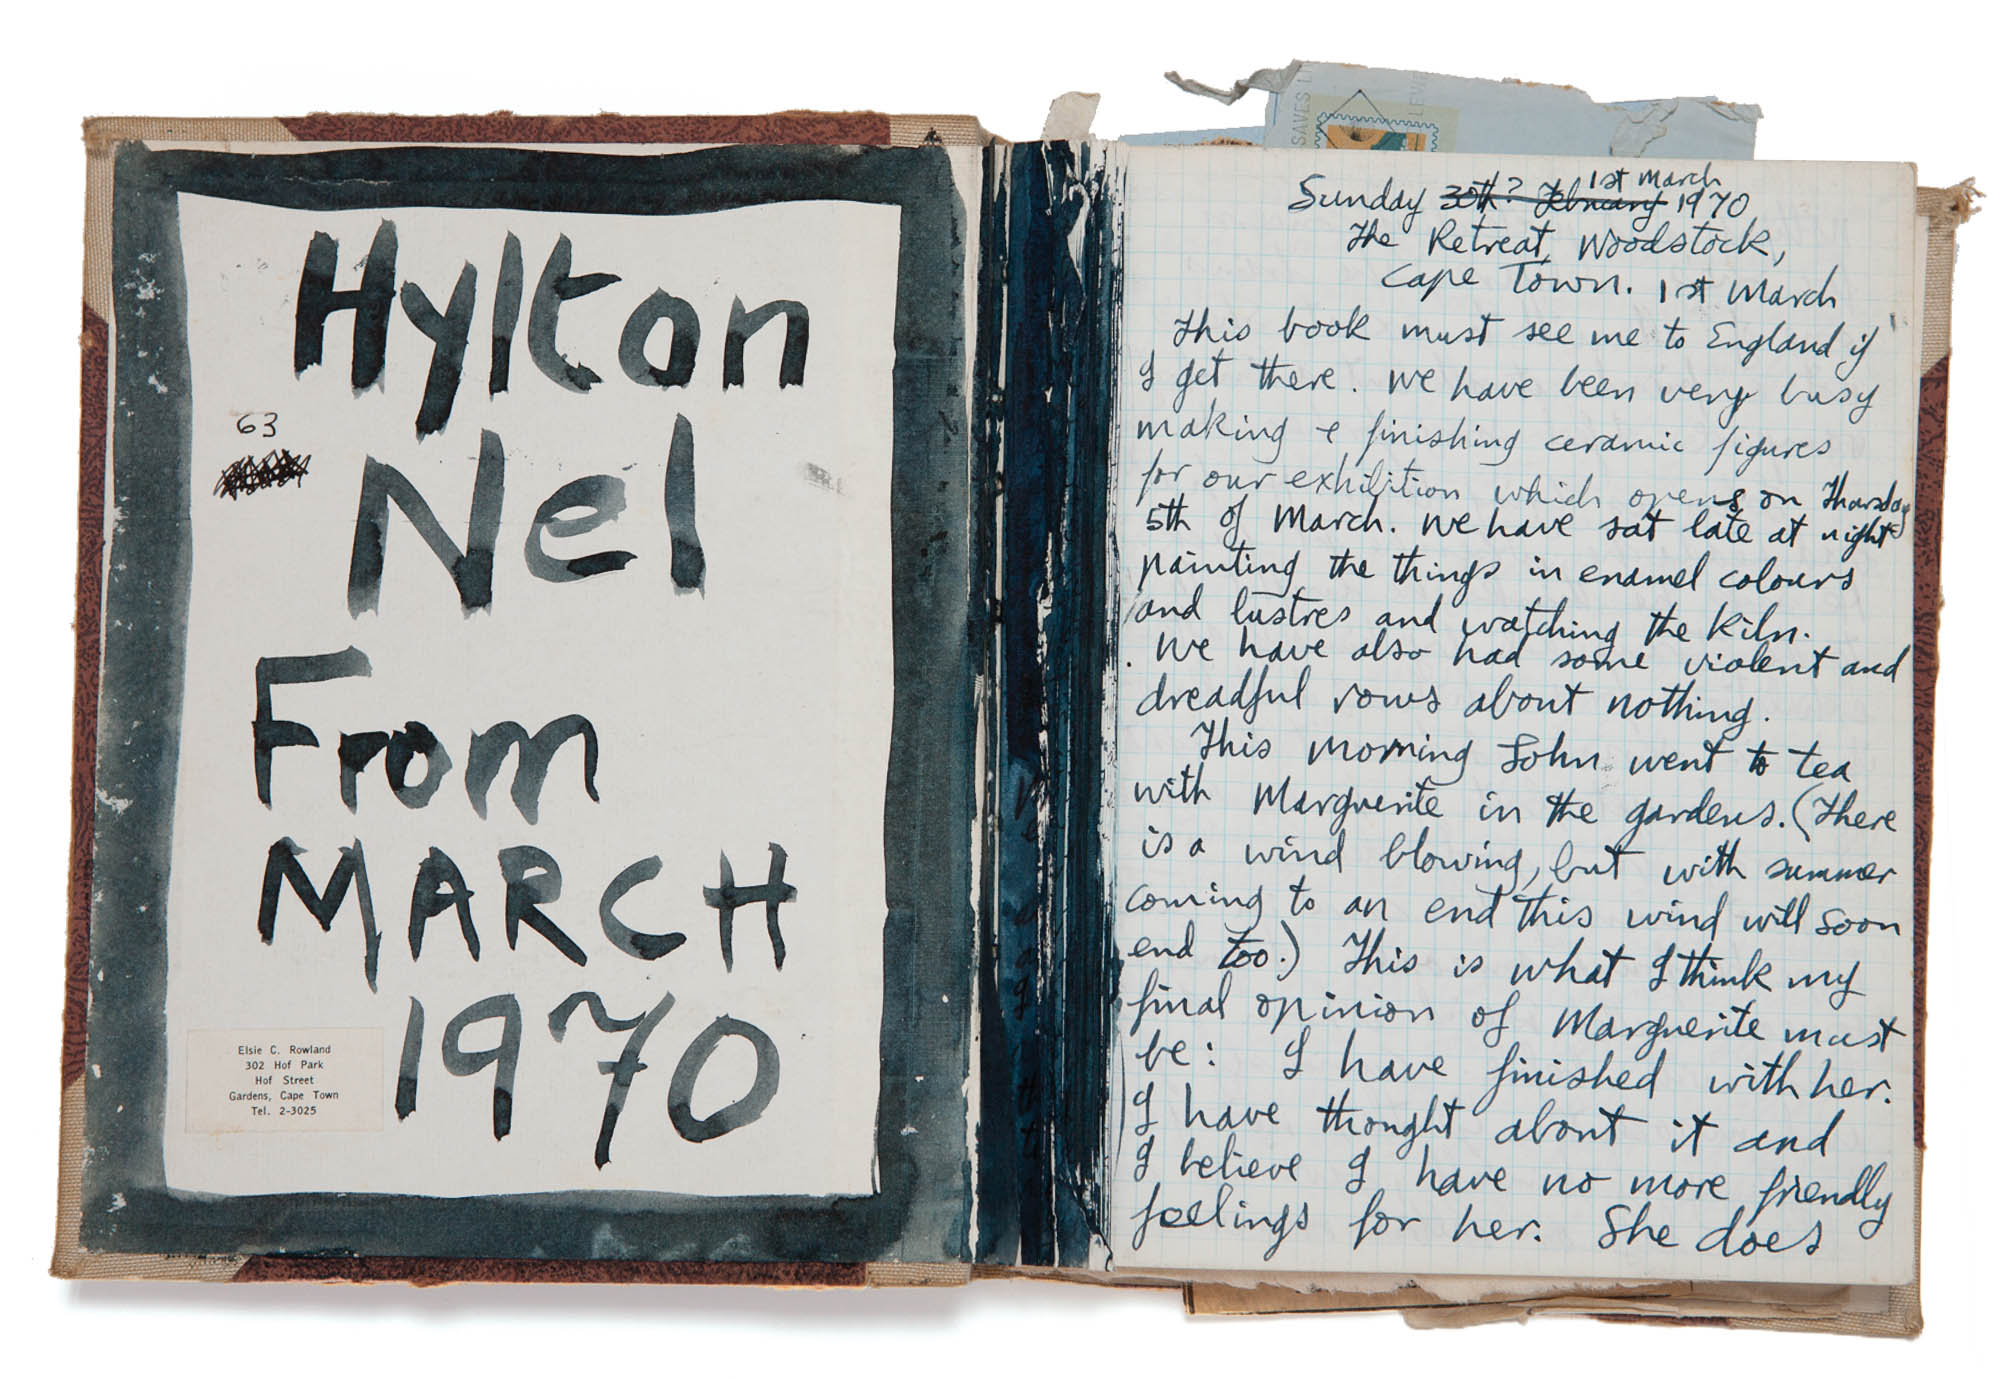 Hylton
Nel
63
From
MARCH
1970
Elsie C. Rowland
302 Hof Park
Hof Street
Gardens, Cape Town
Tel. 2-3025
SAVES LI
LEVE
1st March
Sunday 30th? February 1970
The Retreat, Woodstock,
Cape Town. 1st March
This book must see me to England if
I get there. We have been very busy
making & finishing ceramic figures
for our exhibition which opens on Thursday
5th of March. We have sat late at night
painting the things in enamel colours
and lustres and watching the kiln.
We have also had some violent and
dreadful rows about nothing.
This morning John went to tea
with Marguerite in the gardens. (There
is a wind blowing, but with summer
coming to an end this wind will soon
end too.) This is what I think my
final opinion of Marguerite must
be: I have finished with her.
I have thought about it and
I believe I have no more friendly
feelings for her. She does